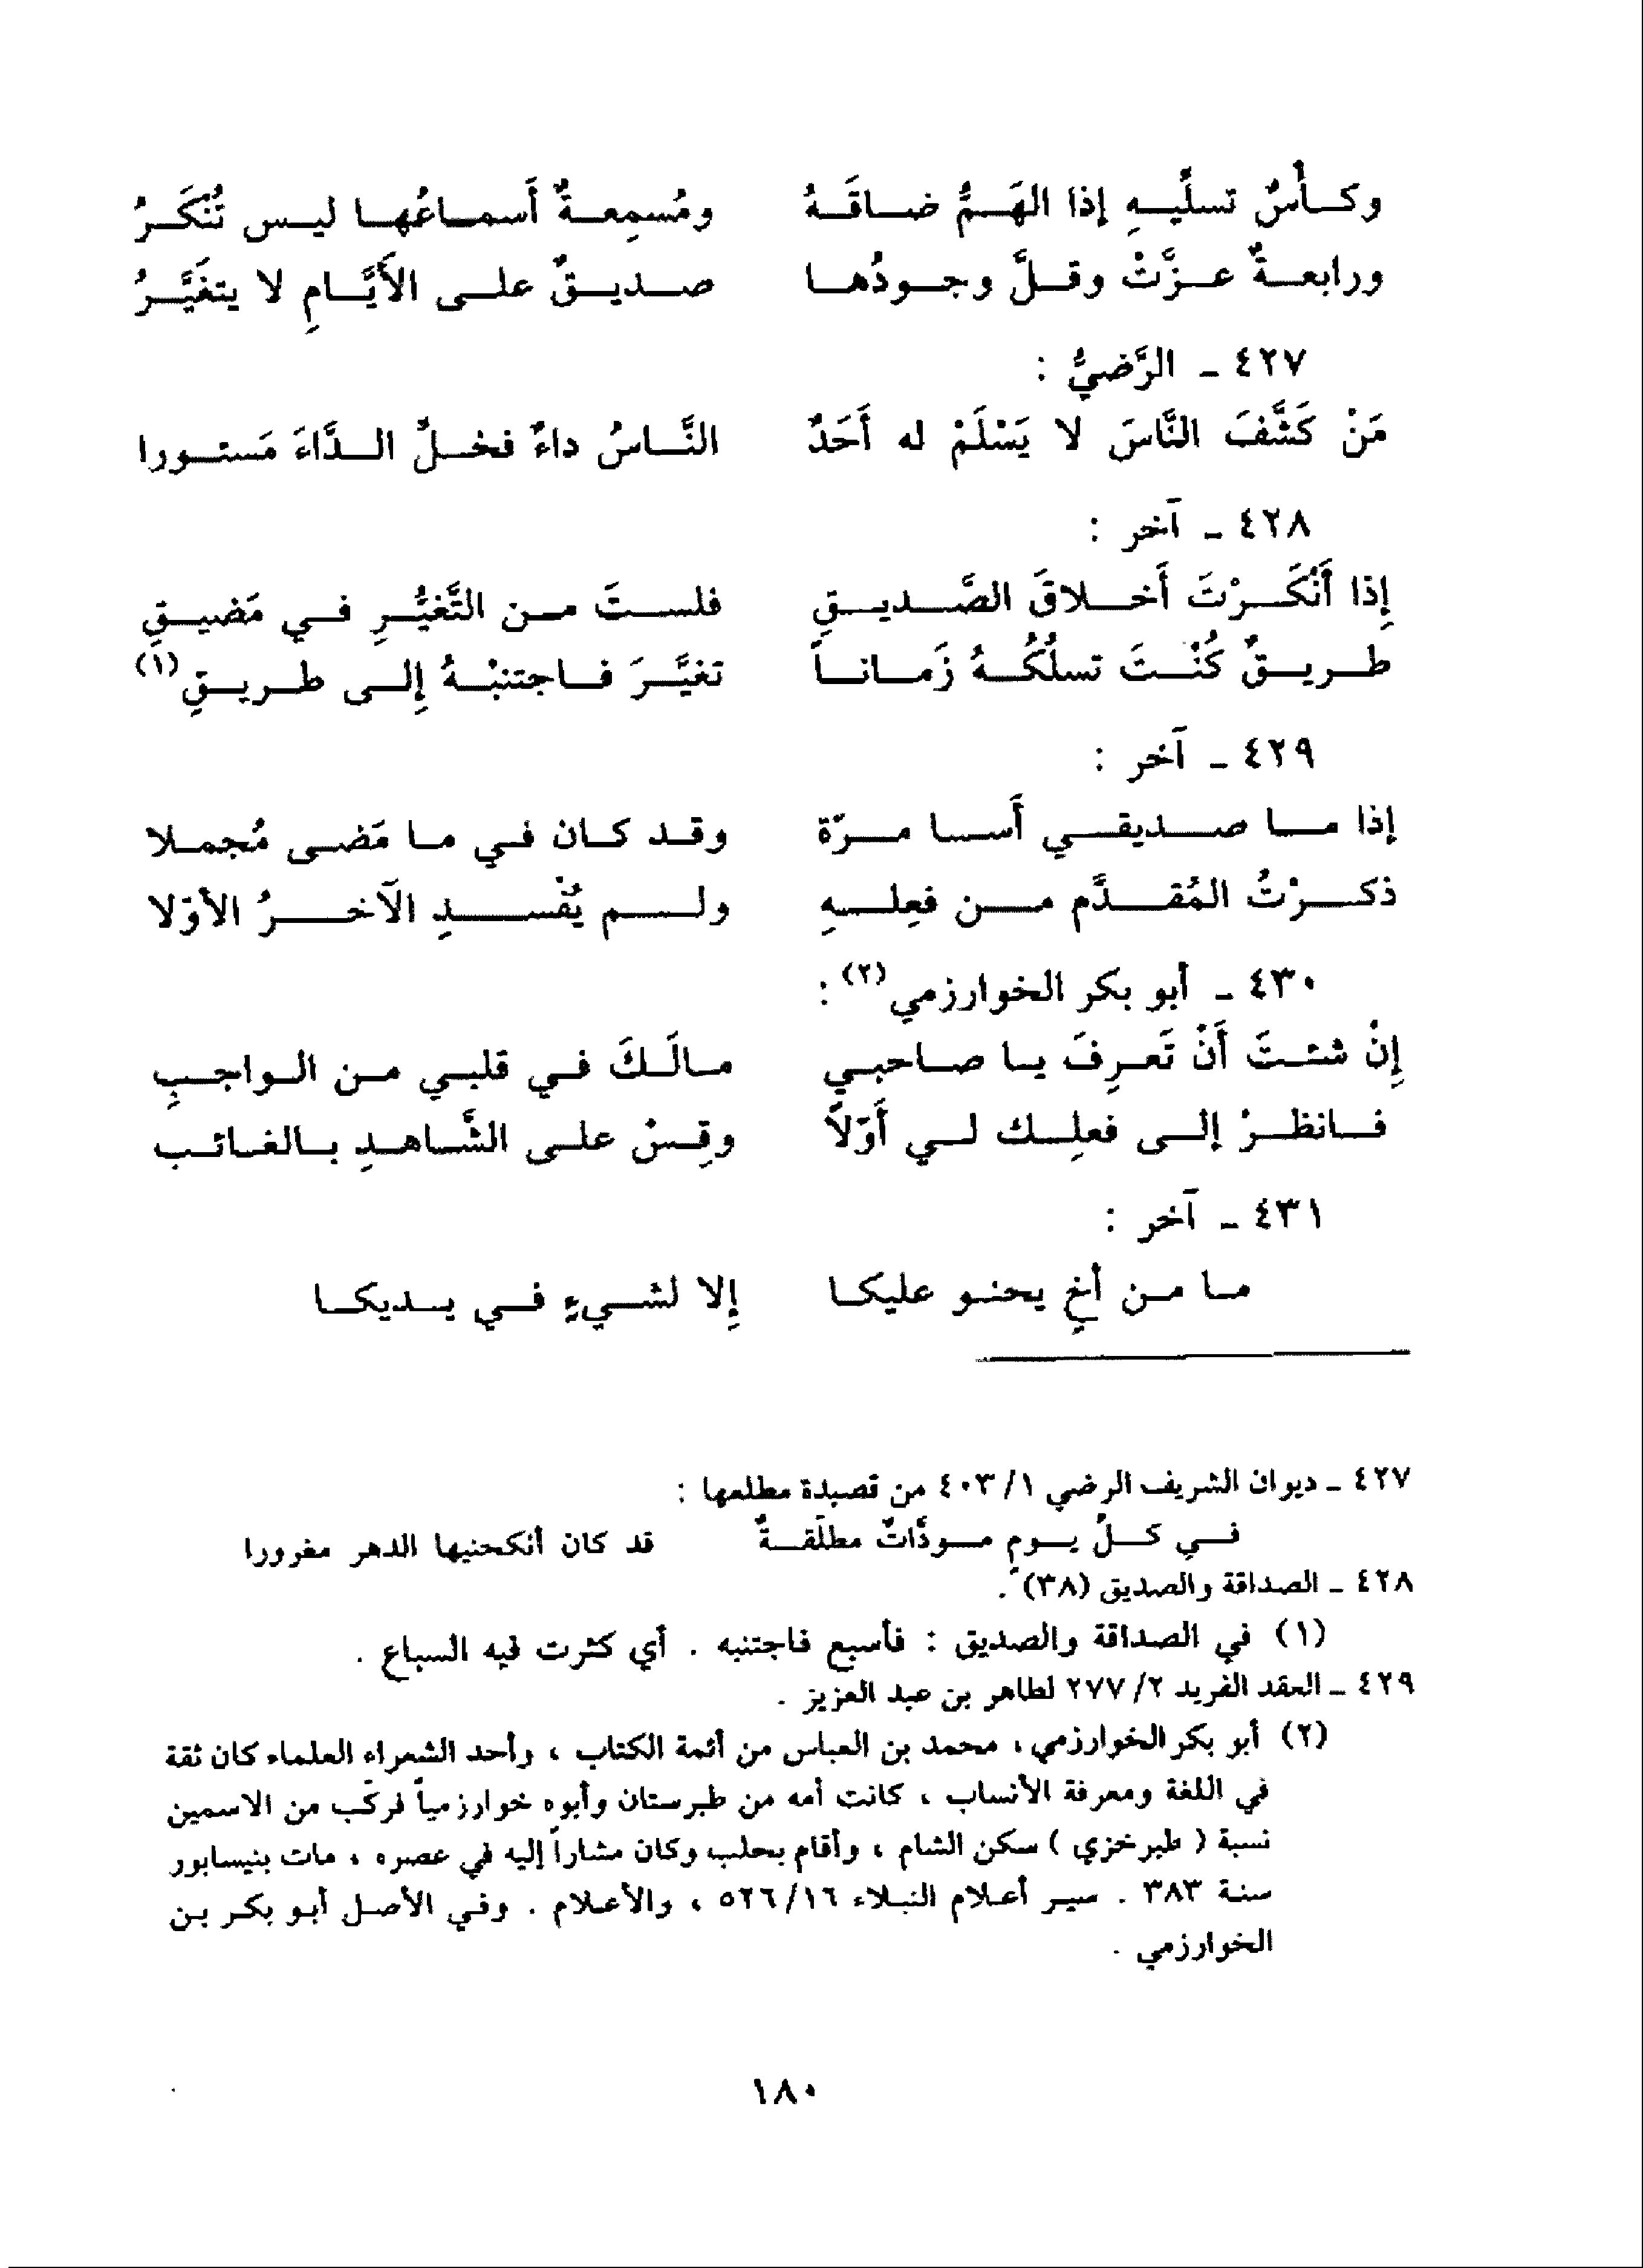 وكأسٌ تسلِّيهِ إذا الهَمُّ ضاقَهُ ومُسمِعةٌ أَسماعُها ليس تُنْكَرُ
ورابعةٌ عزَّتْ وقلَّ وجودُها صديقٌ على الأَيَّامِ لا يتغَيَّرُ
٤٢٧ - الرَّضيُّ :
مَنْ كَشَّفَ النَّاسَ لا يَسْلَمْ له أَحَدٌ النَّاسُ داءٌ فخلِّ الدَّاءَ مَستورا
٤٢٨ - آخر :
إِذا أَنْكَرْتَ أَخلاقَ الصَّديقِ فلستَ من التَّغيُّرِ في مَضيقِ
طريقٌ كُنْتَ تسلُكُهُ زَماناً تغيَّرَ فاجتنبْهُ إِلى طريقِ (١)
٤٢٩ - آخر :
إذا ما صديقي أَسا مرّة وقد كان في ما مَضى مُجملا
ذكرْتُ المُقدَّم من فعِلهِ ولم يُفْسدِ الآخرُ الأوّلا
٤٣٠ - أبو بكر الخوارزمي (٢) :
إِنْ شئتَ أَنْ تَعرِفَ يا صاحبي مالَكَ في قلبي من الواجبِ
فانظرْ إلى فعلِك لي أَوّلاً وقِسْ على الشَّاهدِ بالغائب
٤٣١ - آخر :
ما من أخٍ يحنو عليكا إِلا لشيءٍ في يديكا
٤٢٧ - ديوان الشريف الرضي ١/ ٤٠٣ من قصيدة مطلعها :
في كلِّ يومٍ مودَّاتٌ مطلَّقةٌ قد كان أنكحنيها الدهر مغرورا
٤٢٨ - الصداقة والصديق (٣٨) .
(١) في الصداقة والصديق : فأسبع فاجتنبه . أي كثرت فيه السباع .
٤٢٩ - العقد الفريد ٢/ ٢٧٧ لطاهر بن عبد العزيز .
(٢) أبو بكر الخوارزمي ، محمد بن العباس من أئمة الكتاب ، وأحد الشعراء العلماء كان ثقة
في اللغة ومعرفة الأنساب ، كانت أمه من طبرستان وأبوه خوارزمياً فركّب من الاسمين
نسبة ( طبرخزي ) سكن الشام ، وأقام بحلب وكان مشاراً إليه في عصره ، مات بنيسابور
سنة ٣٨٣ . سير أعلام النبلاء ١٦/ ٥٢٦ ، والأعلام . وفي الأصل أبو بكر بن
الخوارزمي .
١٨٠